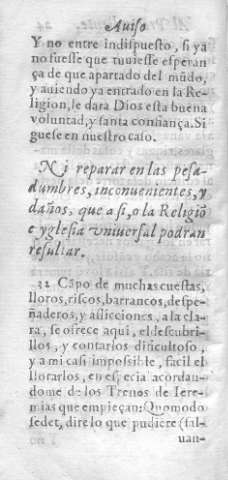 Auiso
Y no entre indispuesto, si ya
no fuesse que tuuiesse esperan
ça de que apartado del mũdo,
y auiendo ya entrado en la Re-
ligion, le dara Dios esta buena
voluntad, y santa confiança. Si
guese en nuestro caso.
Ni reparar en las pesa-
dumbres, inconuenientes, y
daños, que a si, o la Religiõ
e yglesia vniuersal podran
resultar.
32 Cãpo de muchas cuestas,
lloros, riscos, barrancos, despe-
ñaderos, y aflicciones, a la cla-
ra, se ofrece aqui, el descubri-
llos, y contarlos dificultoso,
y a mi casi impossible, facil el
llorarlos, en especia acordan-
dome de los Trenos de Iere-
mias que empieçan: Quomodo
sedet, dire lo que pudiere (sal-
uan-